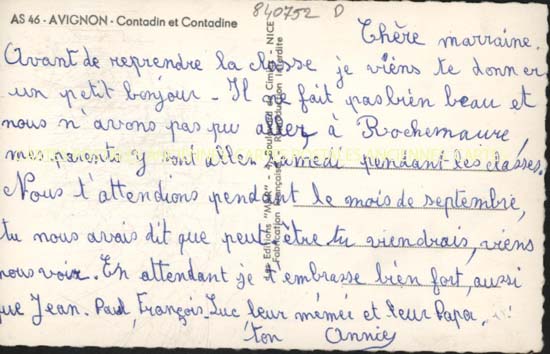 AS 46 - AVIGNON - Contadin et Contadine
840752 D
Chère marraine.
Avant de reprendre la classe je viens te donner
un petit bonjour - Il ne fait pas bien beau et
nous n'avons pas pu aller, à Rochemaure,
mes parents y vont aller samedi pendant les classes.
Nous t'attendions pendant le mois de septembre,
tu nous avais dit que peut être tu viendrais, viens
nous voir. En attendant je t'embrasse bien fort, aussi
que Jean. Paul, François, Luc leur mémée et leur Papa,
ton Annie
Les Editions "MAR"
NICE
Fabrication Française - Reproduction Interdite